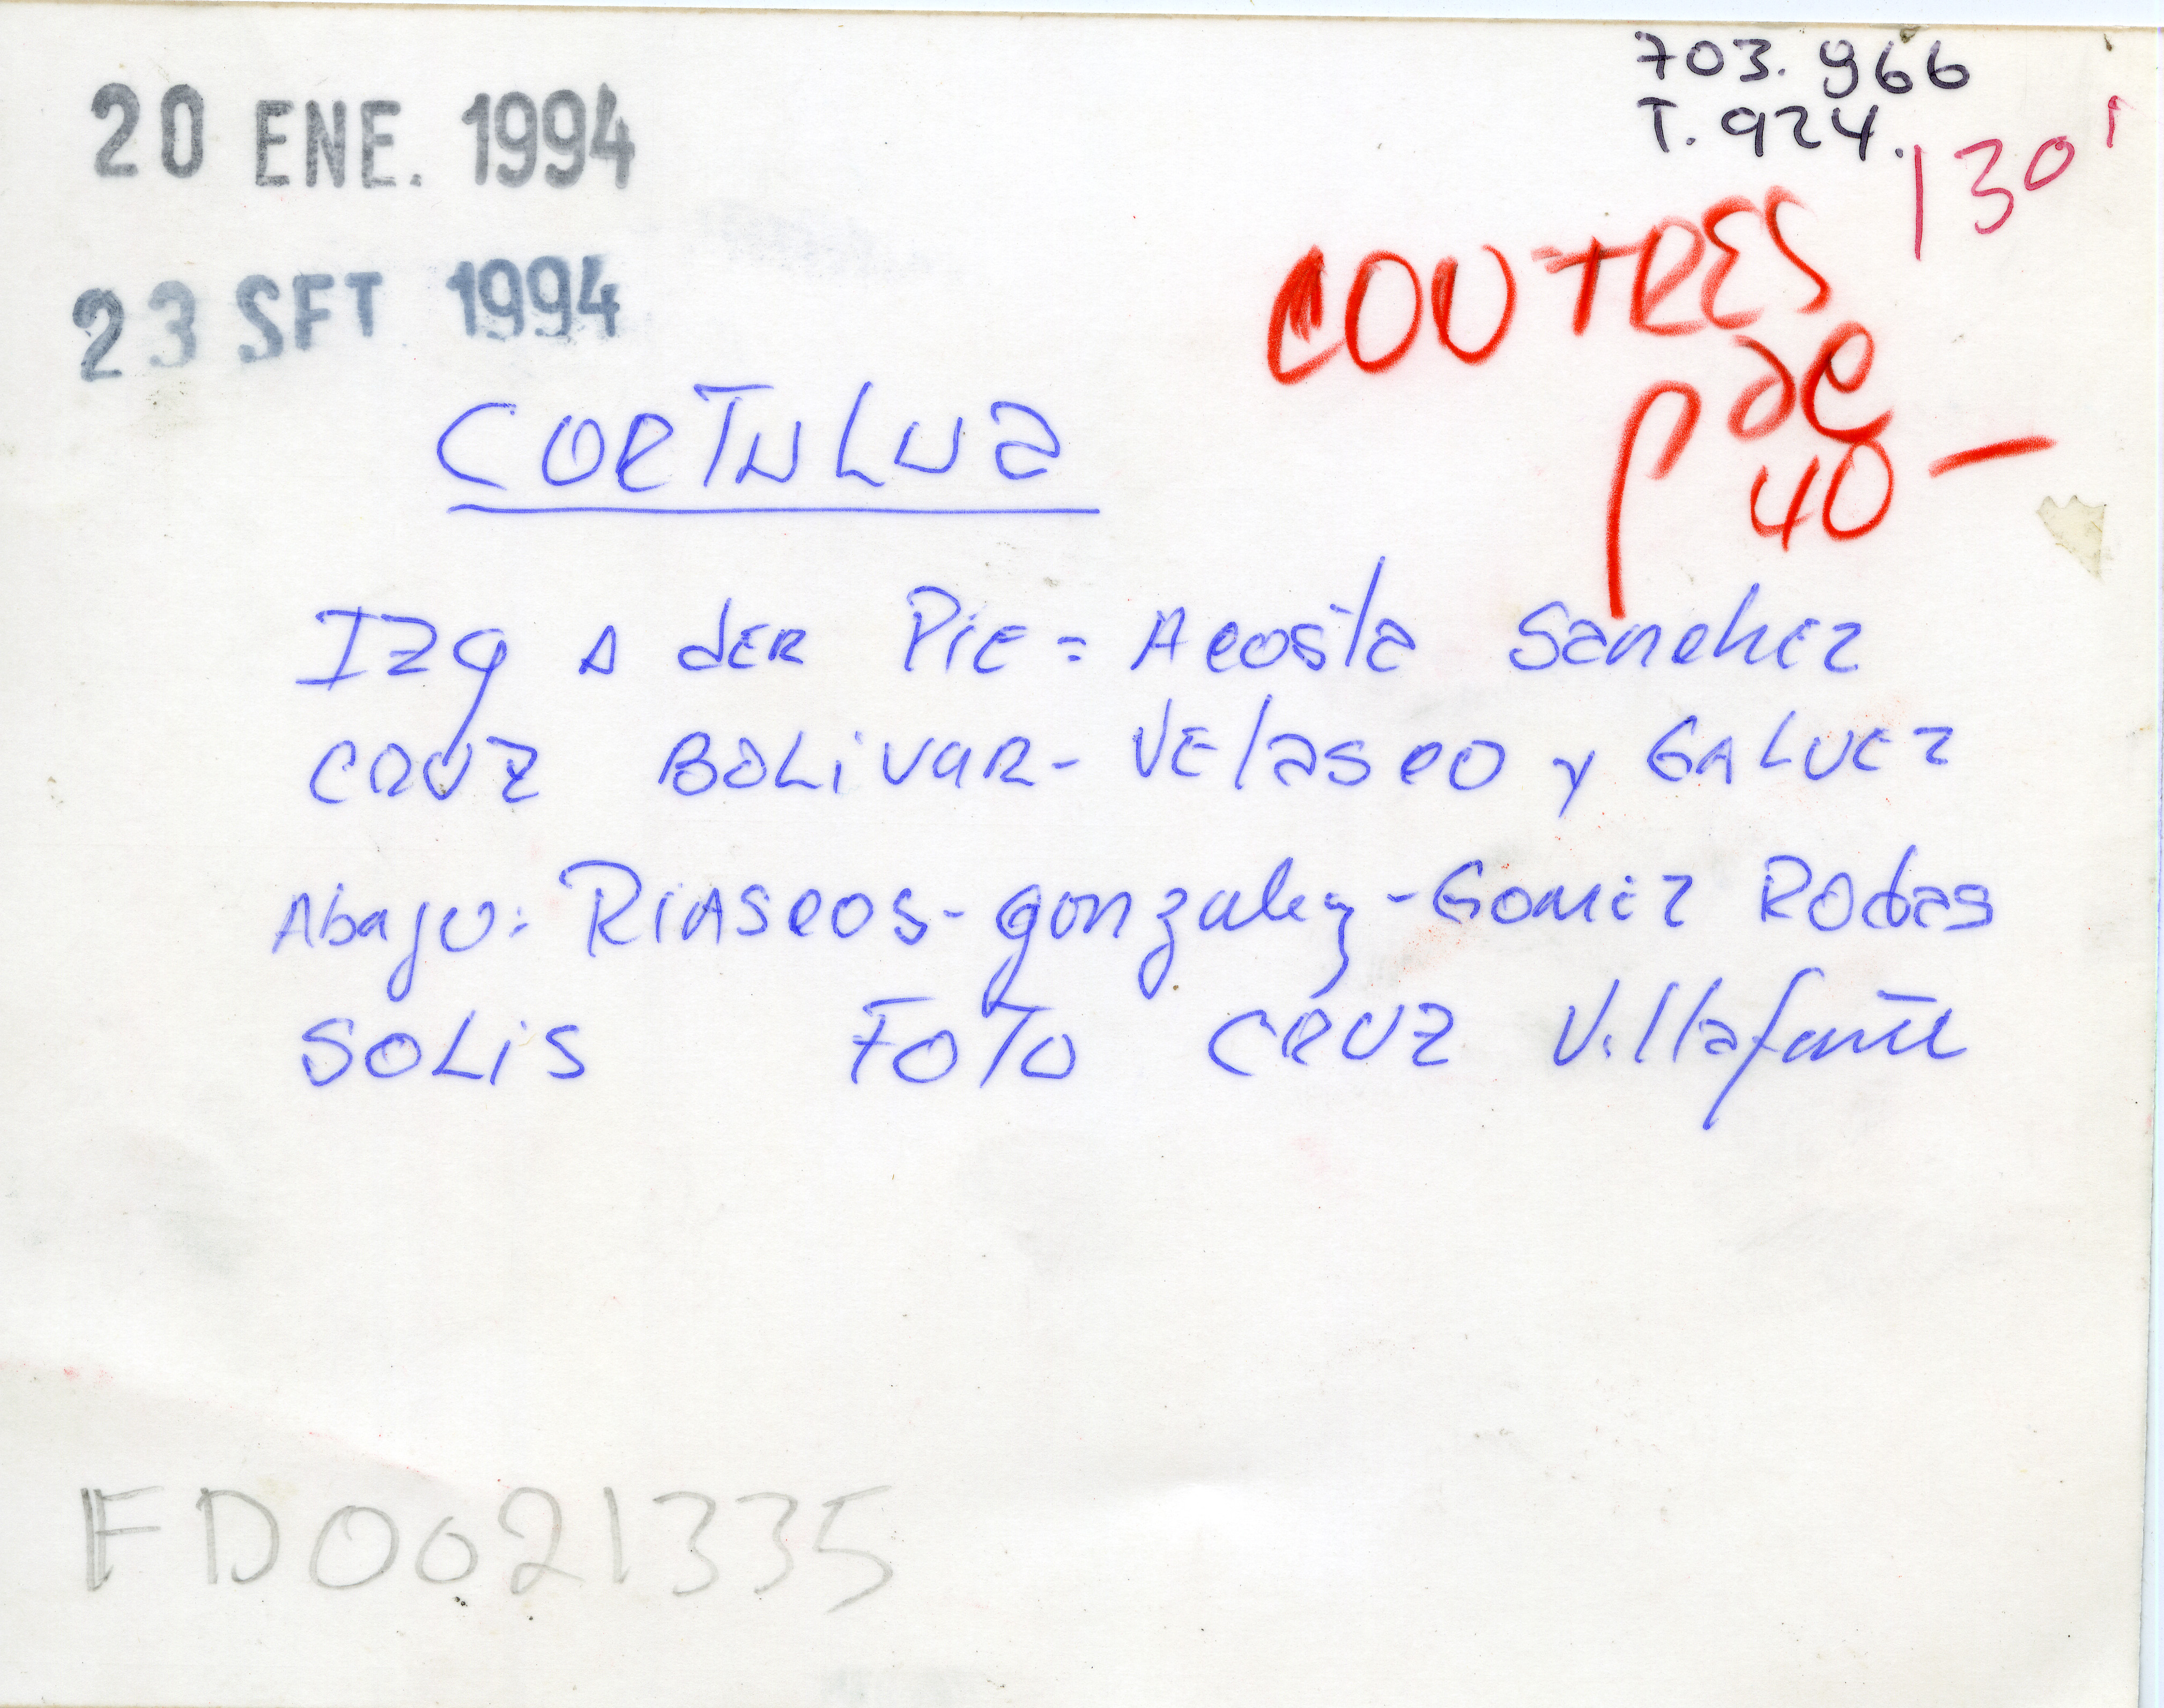 20 ENE. 1994
703. 966
T. 924.
130'
23 SET 1994
COUTRES
de
P 40 -
CORTULUA
Izq A der Pie = Acosta Sanchez
CRUZ BOLIVAR - Velasco y GALVEZ
Abajo: RIASCOS - gonzalez - Gomez Rodas
SOLIS FOTO CRUZ Villafañe
FD0021335